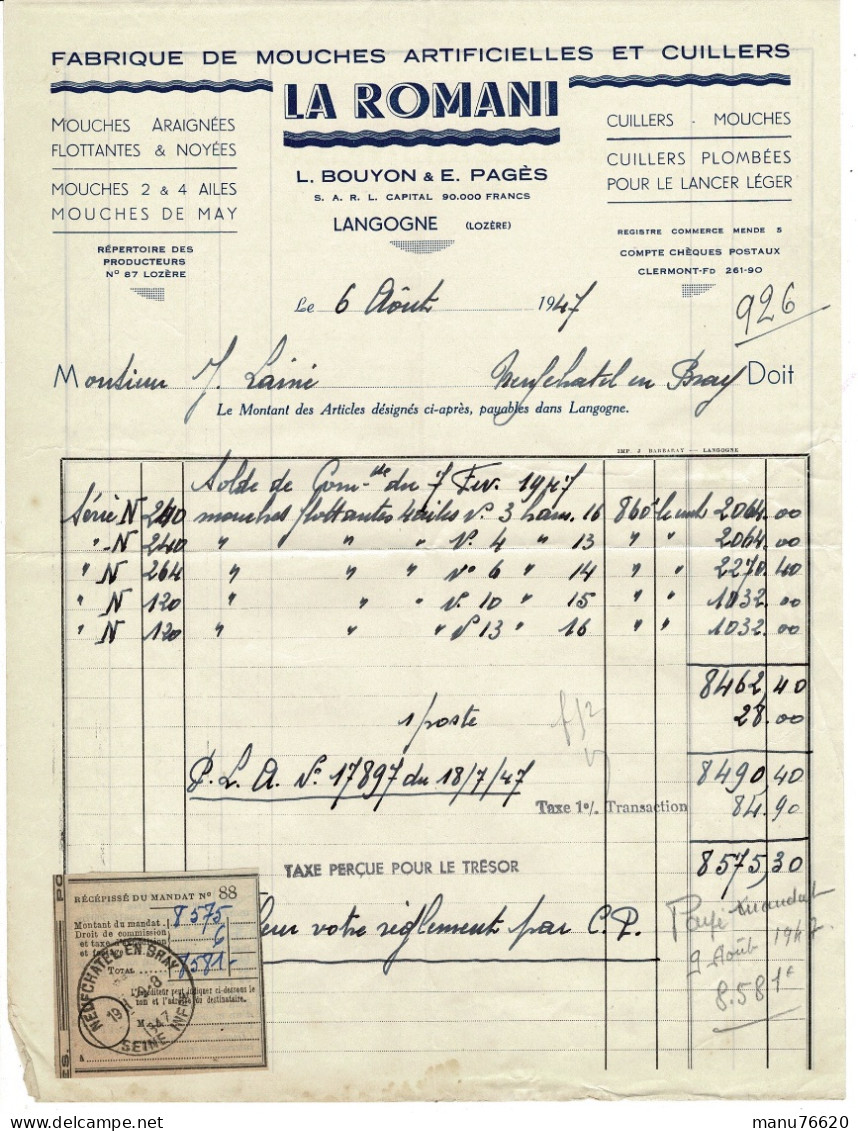 FABRIQUE DE MOUCHES ARTIFICIELLES ET CUILLERS
LA ROMANI
MOUCHES ARAIGNÉES
FLOTTANTES & NOYÉES
MOUCHES 2 & 4 AILES
MOUCHES DE MAY
RÉPERTOIRE DES
PRODUCTEURS
N° 87 LOZÈRE
L. BOUYON & E. PAGÈS
S. A. R. L. CAPITAL 90.000 FRANCS
LANGOGNE (LOZÈRE)
CUILLERS - MOUCHES
CUILLERS PLOMBÉES
POUR LE LANCER LÉGER
REGISTRE COMMERCE MENDE 5
COMPTE CHÈQUES POSTAUX
CLERMONT-FD 261-90
Le 6 Aôut 1947
926
Monsieur J. Lainé Neufchatel en Bray Doit
Le Montant des Articles désignés ci-après, payables dans Langogne.
IMP. J BARBARAY — LANGOGNE
Solde de Com-de du 7 Fev. 1947
Série N 240 mouches flottantes 4 ailes N° 3 ham. 16 860 le 2064.00
" - N 240 " " " N° 4 " 13 " " 2064.00
" N 264 " " " N° 6 " 14 " " 2270.40
" N 120 " " " N° 10 " 15 " " 1032.00
" N 120 " " " N° 13 " 16 " " 1032.00
8462,40
1/poste 28.00
P. L. A. N° 17897 du 18/7/47 8490,40
Taxe 1% Transaction 84.90
TAXE PERÇUE POUR LE TRÉSOR 8575,30
votre règlement par C.P.
Payé mandat
9 Août 1947
8.581 f
RÉCÉPISSÉ DU MANDAT N° 88
Montant du mandat 8575
Droit de commission
et taxe 6
TOTAL 8581-
L'expéditeur peut indiquer ci-dessous le
nom et l'adresse du destinataire.
M
A
NEUFCHATEL-EN-BRAY
1947
SEINE INFRE
delcampe.net
manu76620